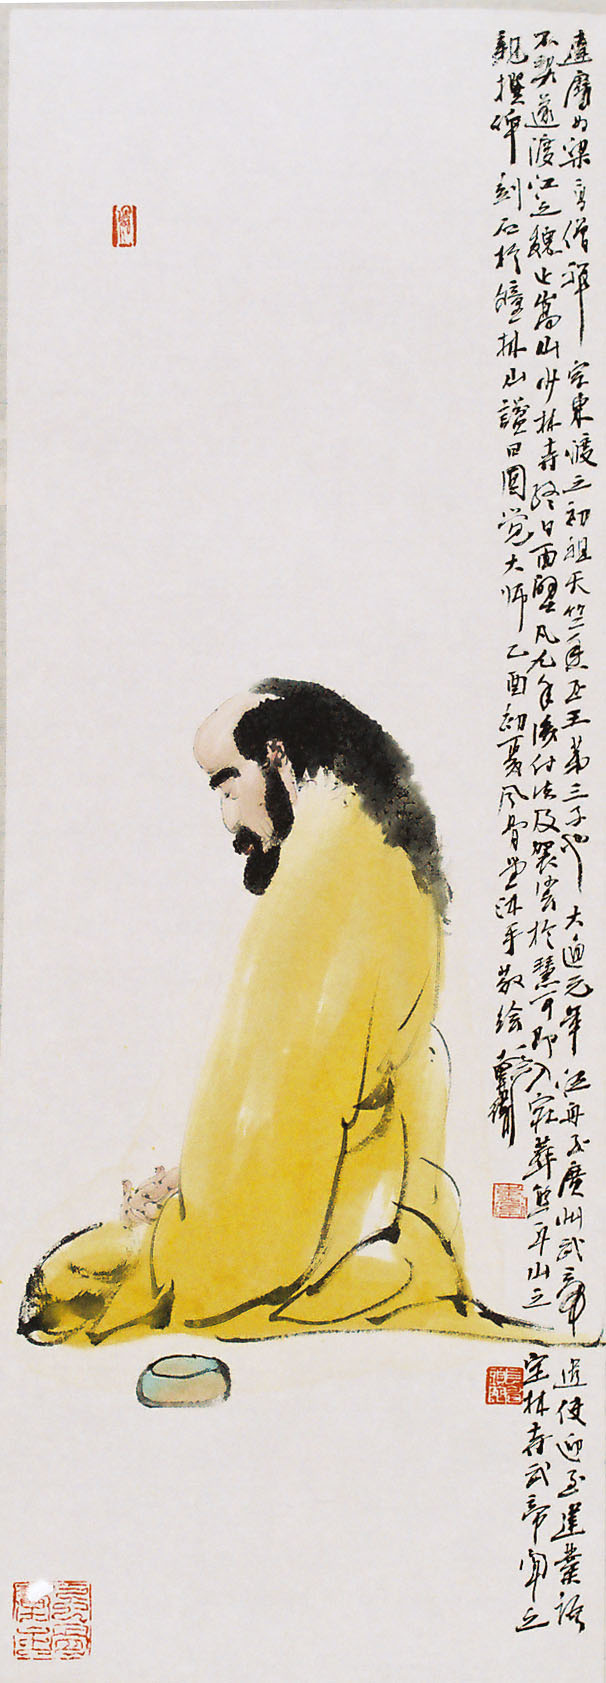 達摩为梁高僧禪宗東渡之初祖天竺香至王第三子也大通元年泛舟至廣州武帝遣使迎至建業語
不契遂渡江之魏止嵩山少林寺終日面壁凡九年後付法及袈裟於慧可即入寂葬熊耳山之定林寺武帝聞之
親撰碑刻石於林山諡曰圓覺大師乙酉初夏風骨堂沐手敬繪